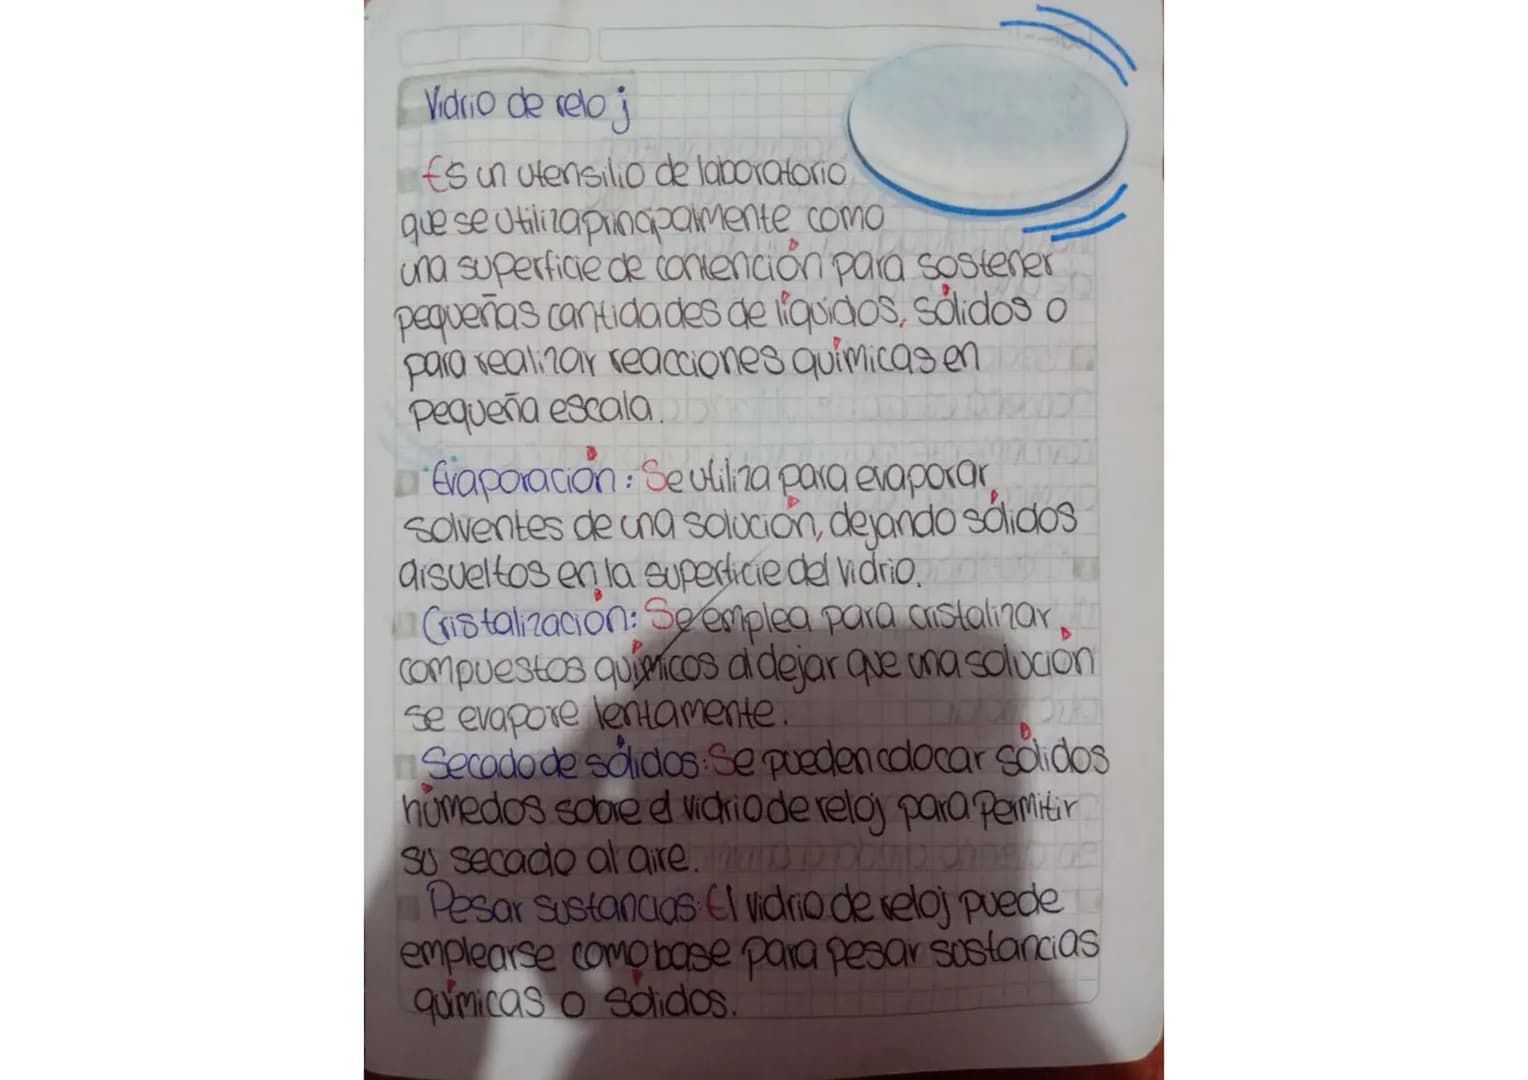 Vidrio de reloj
Es un utensilio de laboratorio
que se utiliza principalmente como
una superficie de contención para sostener
pequeñas cantidades de líquidos, sólidos o
para realizar reacciones químicas en
pequeña escala.
Evaporación: Se utiliza para evaporar
solventes de una solución, dejando sólidos
disueltos en la superficie del vidrio.
Cristalización: Se emplea para cristalizar
compuestos químicos al dejar que una solución
se evapore lentamente.
Secado de sólidos: Se pueden colocar sólidos
húmedos sobre el vidrio de reloj para Permitir
su secado al aire.
Pesar sustancias: El vidrio de reloj puede
emplearse como base para pesar sustancias
químicas o sólidos.